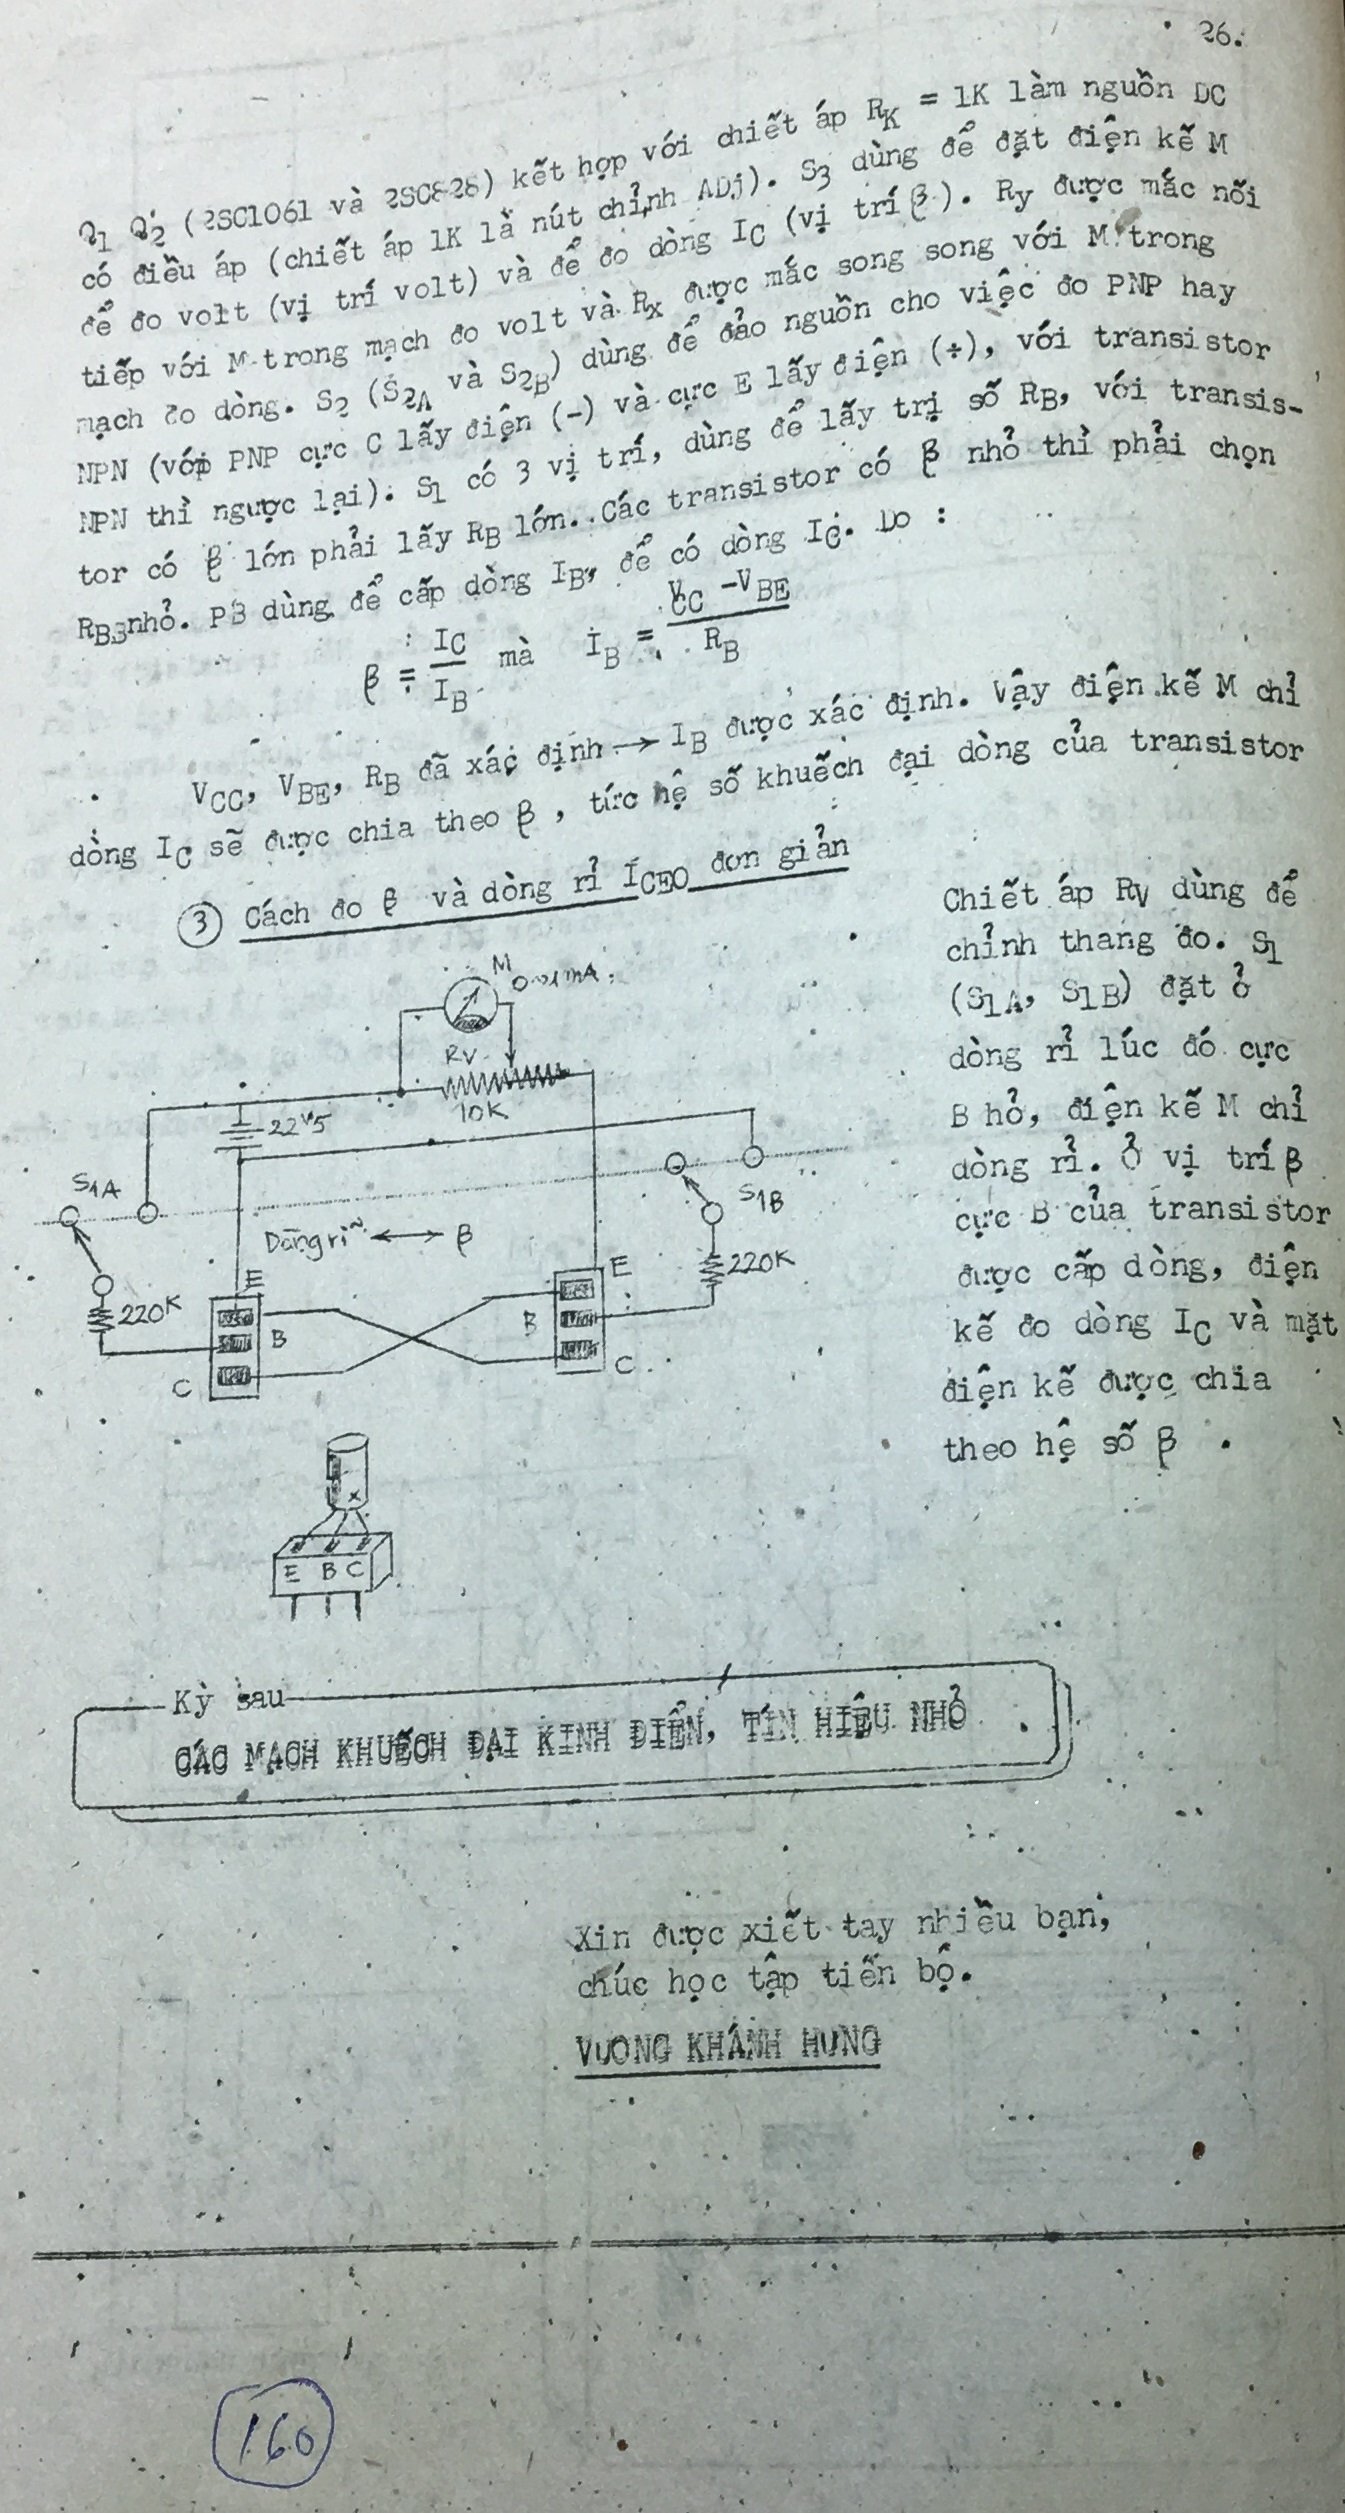 26.
Q1 Q2 (2SC1061 và 2SC828) kết hợp với chiết áp RK = 1K làm nguồn DC
có điều áp (chiết áp 1K là nút chỉnh ADj). S3 dùng để đặt điện kế M
để đo volt (vị trí volt) và để đo dòng IC (vị trí β). Ry được mắc nối
tiếp với M trong mạch đo volt và Rx được mắc song song với M trong
mạch đo dòng. S2 (S2A và S2B) dùng để đảo nguồn cho việc đo PNP hay
NPN (với PNP cực C lấy điện (-) và cực E lấy điện (+), với transistor
NPN thì ngược lại). S1 có 3 vị trí, dùng để lấy trị số RB, với transis-
tor có β lớn phải lấy RB lớn. Các transistor có β nhỏ thì phải chọn
RB nhỏ. PB dùng để cấp dòng IB, để có dòng IC. Do :
β = IC / IB mà IB = VCC - VBE / RB
VCC, VBE, RB đã xác định → IB được xác định. Vậy điện kế M chỉ
dòng IC sẽ được chia theo β , tức hệ số khuếch đại dòng của transistor
3 Cách đo β và dòng rỉ ICEO đơn giản
Chiết áp RV dùng để
chỉnh thang đo. S1
(S1A, S1B) đặt ở
dòng rỉ lúc đó cực
B hở, điện kế M chỉ
dòng rỉ. Ở vị trí β
cực B của transistor
được cấp dòng, điện
kế đo dòng IC và mặt
điện kế được chia
theo hệ số β .
M
RV
10K
22V5
S1A
S1B
Dòng rỉ ⟷ β
220K
220K
E
B
C
E
B
C
E B C
Kỳ sau
CÁC MẠCH KHUẾCH ĐẠI KINH ĐIỂN, TÍN HIỆU NHỎ
Xin được xiết tay nhiều bạn,
chúc học tập tiến bộ.
VƯƠNG KHÁNH HƯNG
160